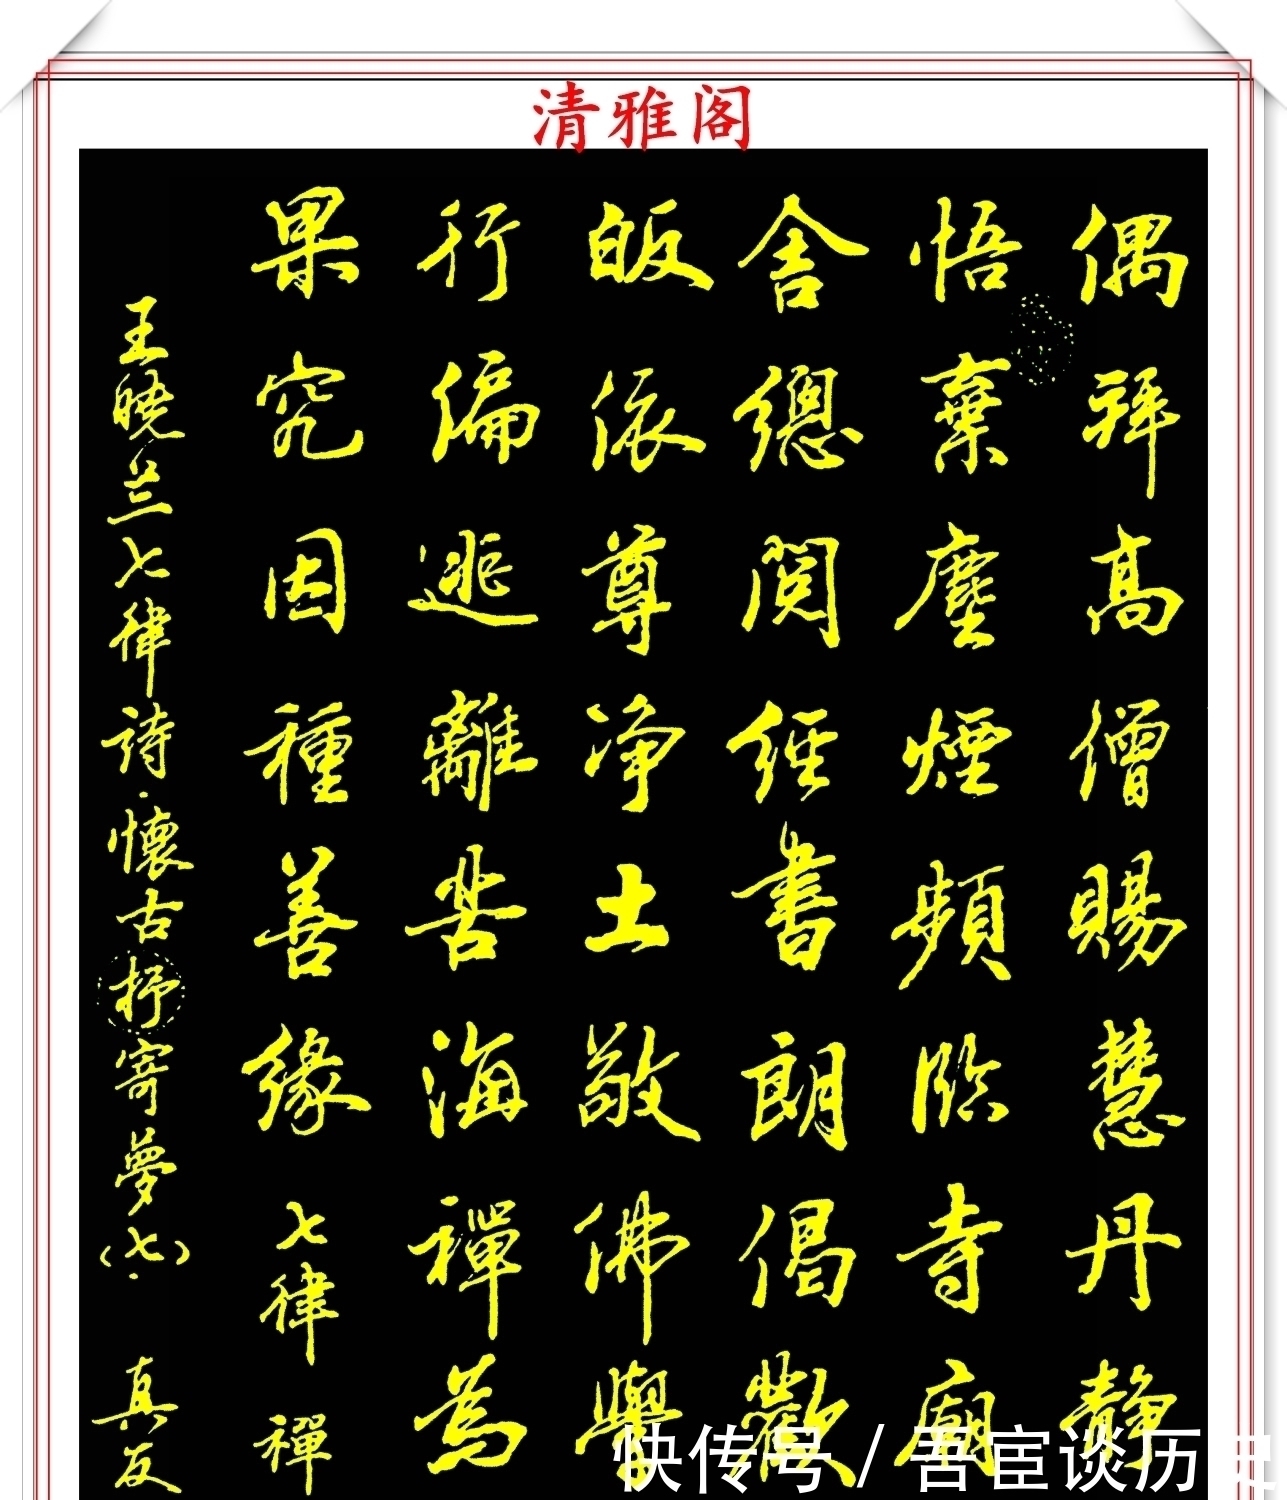 清雅阁
偶拜高僧賜慧丹静
悟棄塵煙頻臨寺廟
舍總閱經書朗偈歡
皈依尊净土敬佛學
行偏逃離苦海禪為
果究因種善緣 七律 禪
王晓兰七律詩·懷古抒寄夢(七)· 真友
快传号/吾宦谈历史